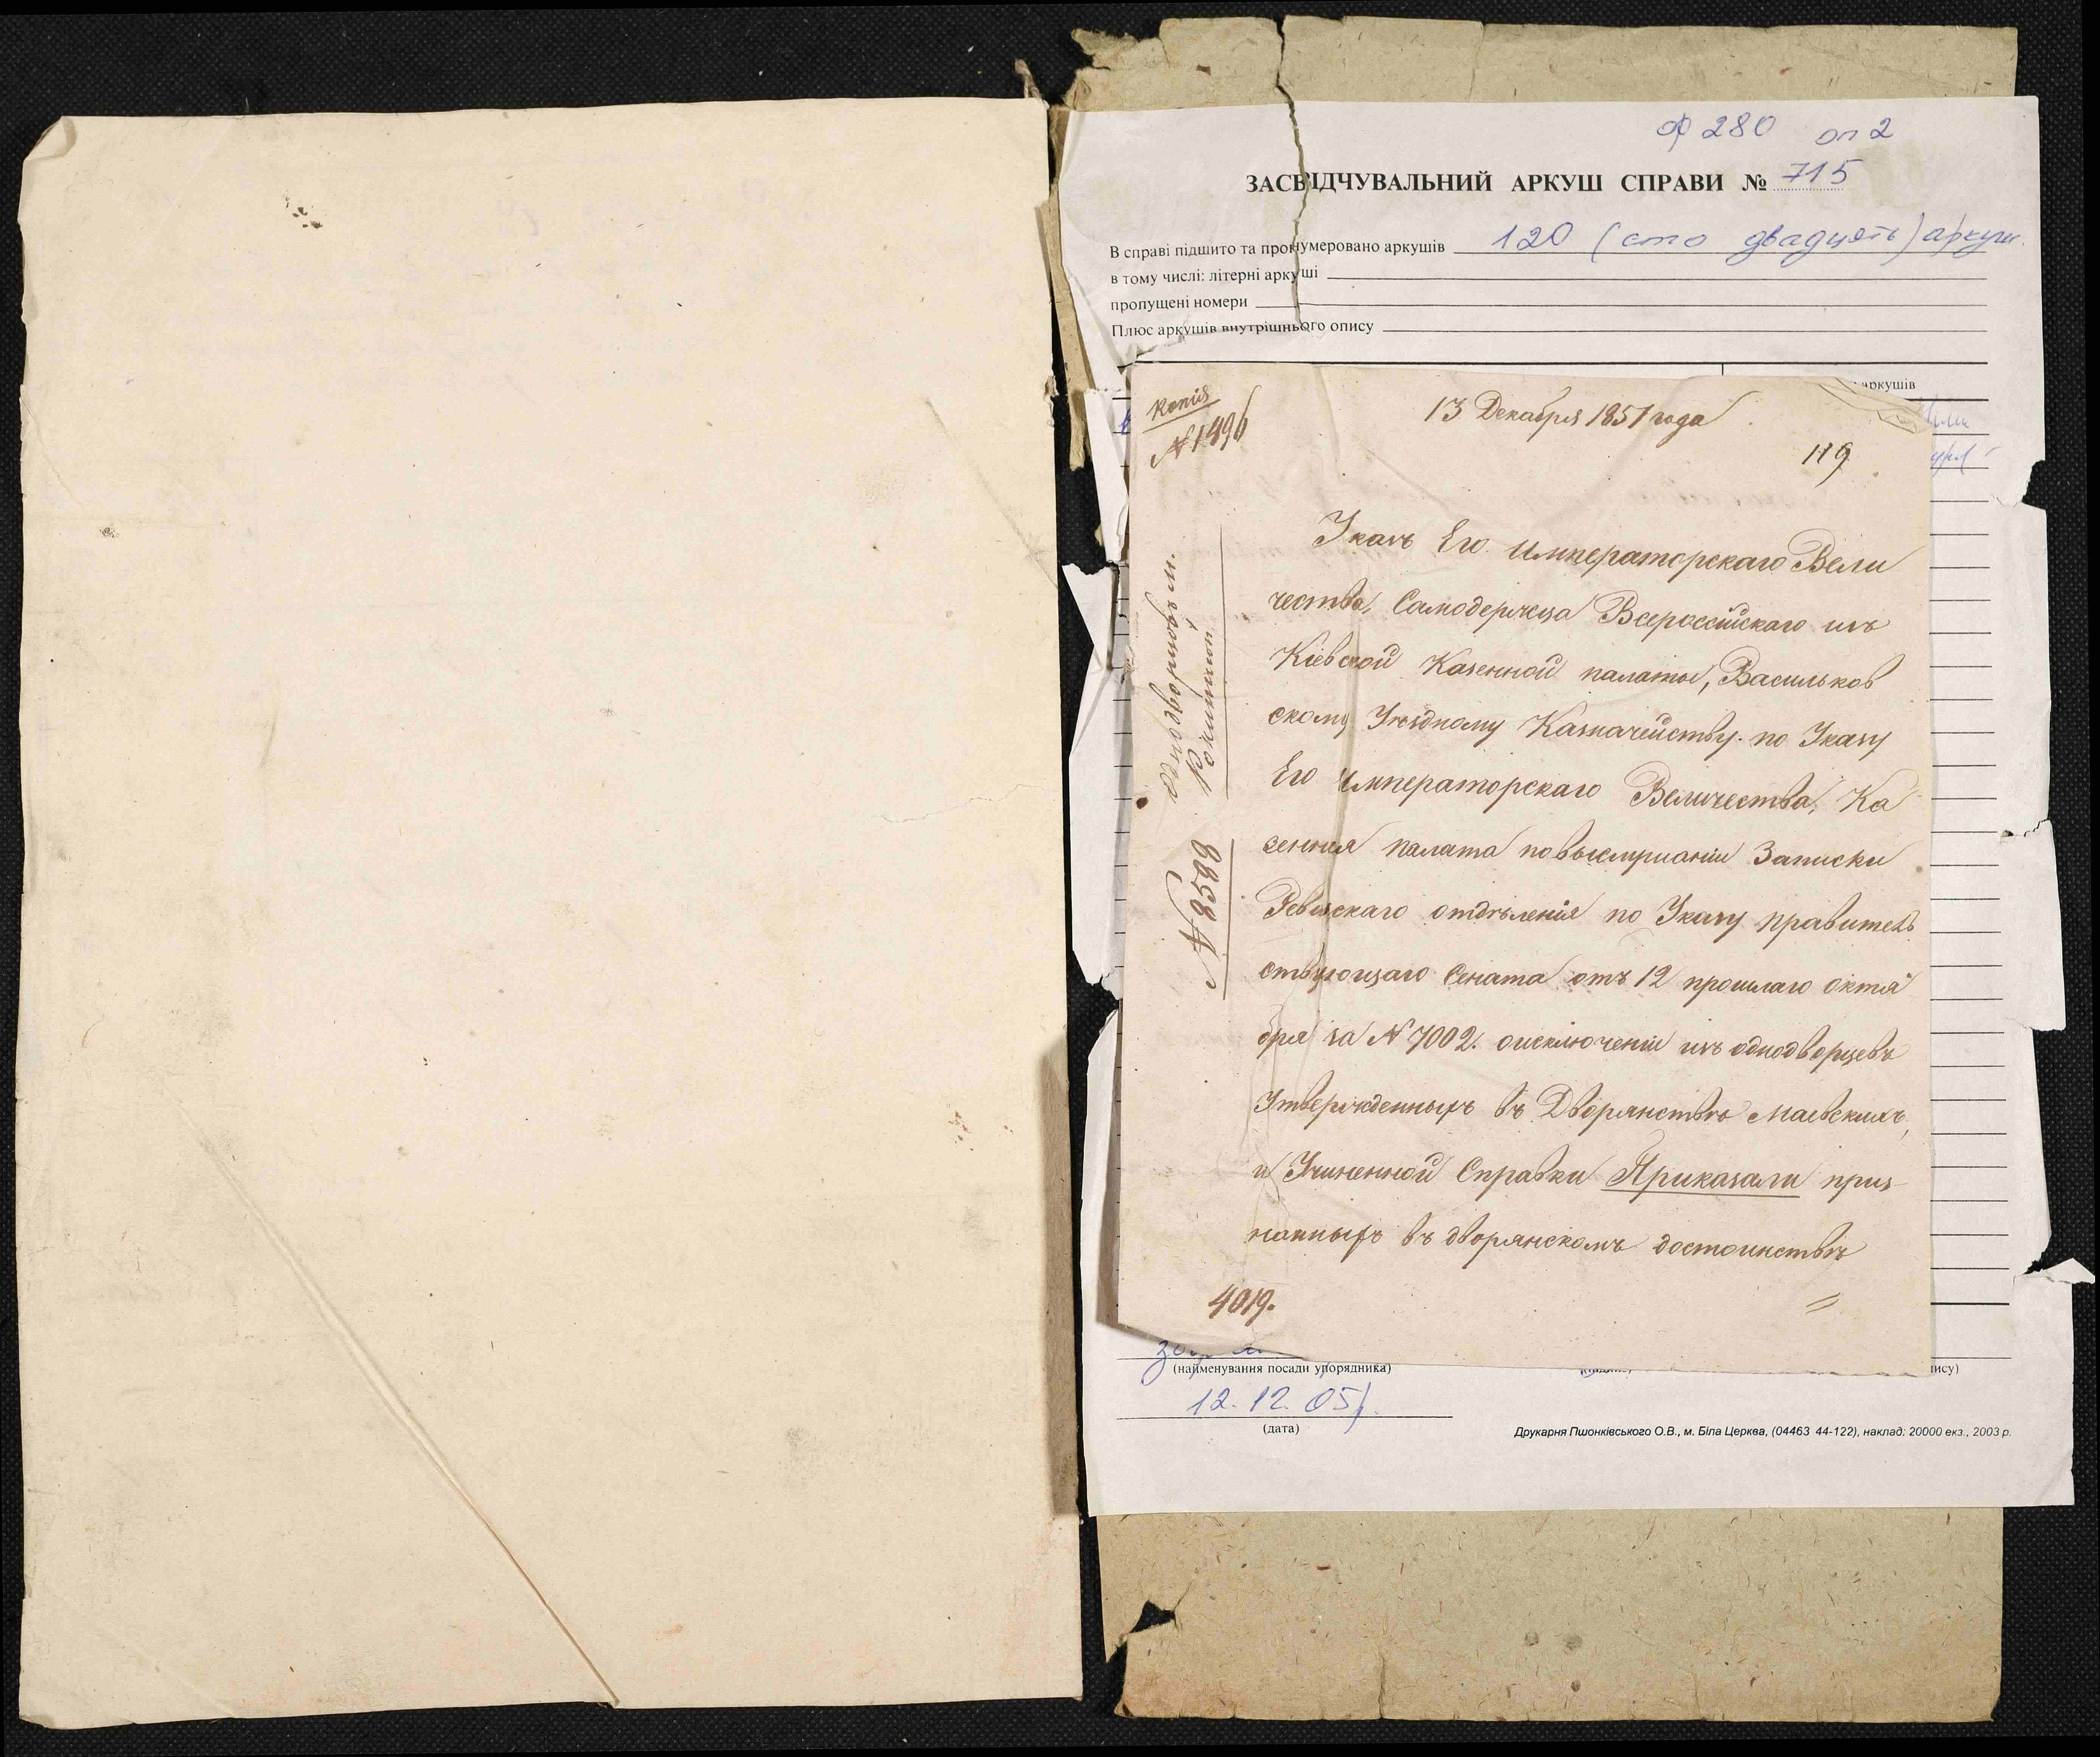 ф 280 оп 2
ЗАСВІДЧУВАЛЬНИЙ АРКУШ СПРАВИ № 715
В справі підшито та пронумеровано аркушів 120 (сто двадцять) аркуш.
в тому числі: літерні аркуші
пропущені номери
Плюс аркушів внутрішнього опису
аркушів
Копія
№ 1496
13 Декабря 1851 года
119
Однодворцовъ м.
Рокитной
№ 8588
Указъ Его Императорскаго Вели
чества, Самодержца Всероссійскаго изъ
Кіевской Казенной палаты, Васильков
скому Уѣздному Казначейству. по Указу
Его Императорскаго Величества, Ка
зенная палата по выслушаніи Записки
Ревизскаго отдѣленія по Указу правитель
ствующаго Сената отъ 12 прошлаго октя
бря за № 7002. о исключеніи изъ однодворцевъ
Утвержденныхъ въ Дворянствѣ Маевскихъ,
и Учиненной Справки Приказали приз-
нанныхъ въ дворянскомъ достоинствѣ
4019.
(найменування посади упорядника)
12.12.05р.
(дата)
Друкарня Пшонківського О.В., м. Біла Церква, (04463 44-122), наклад: 20000 екз., 2003 р.